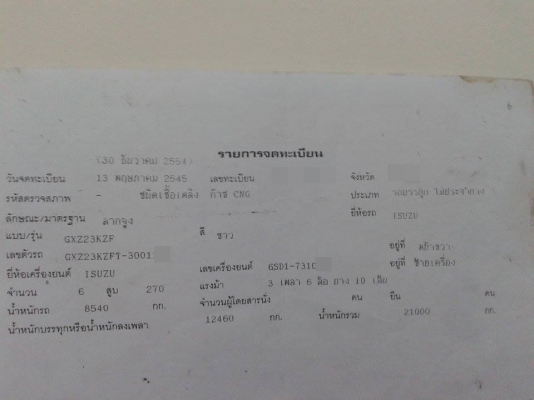 (30 ธันวาคม 2554) รายการจดทะเบียน
วันจดทะเบียน 13 พฤษภาคม 2545 เลขทะเบียน จังหวัด
รหัสตรวจสภาพ - ชนิดเชื้อเพลิง ก๊าซ CNG ประเภท
ลักษณะ/มาตรฐาน ลากจูง ยี่ห้อรถ ISUZU
แบบ/รุ่น GXZ23KZF สี ขาว
เลขตัวรถ GXZ23KZF1-3001 อยู่ที่
ยี่ห้อเครื่องยนต์ ISUZU เลขเครื่องยนต์ 6SD1-731 อยู่ที่ ซ้ายเครื่อง
จำนวน 6 สูบ 270 แรงม้า 3 เพลา 6 ล้อ ยาง 10 เส้น
น้ำหนักรถ 8540 กก. จำนวนผู้โดยสารนั่ง คน ยืน คน
น้ำหนักบรรทุกหรือน้ำหนักลงเพลา 12460 กก. น้ำหนักรวม 21000 กก.